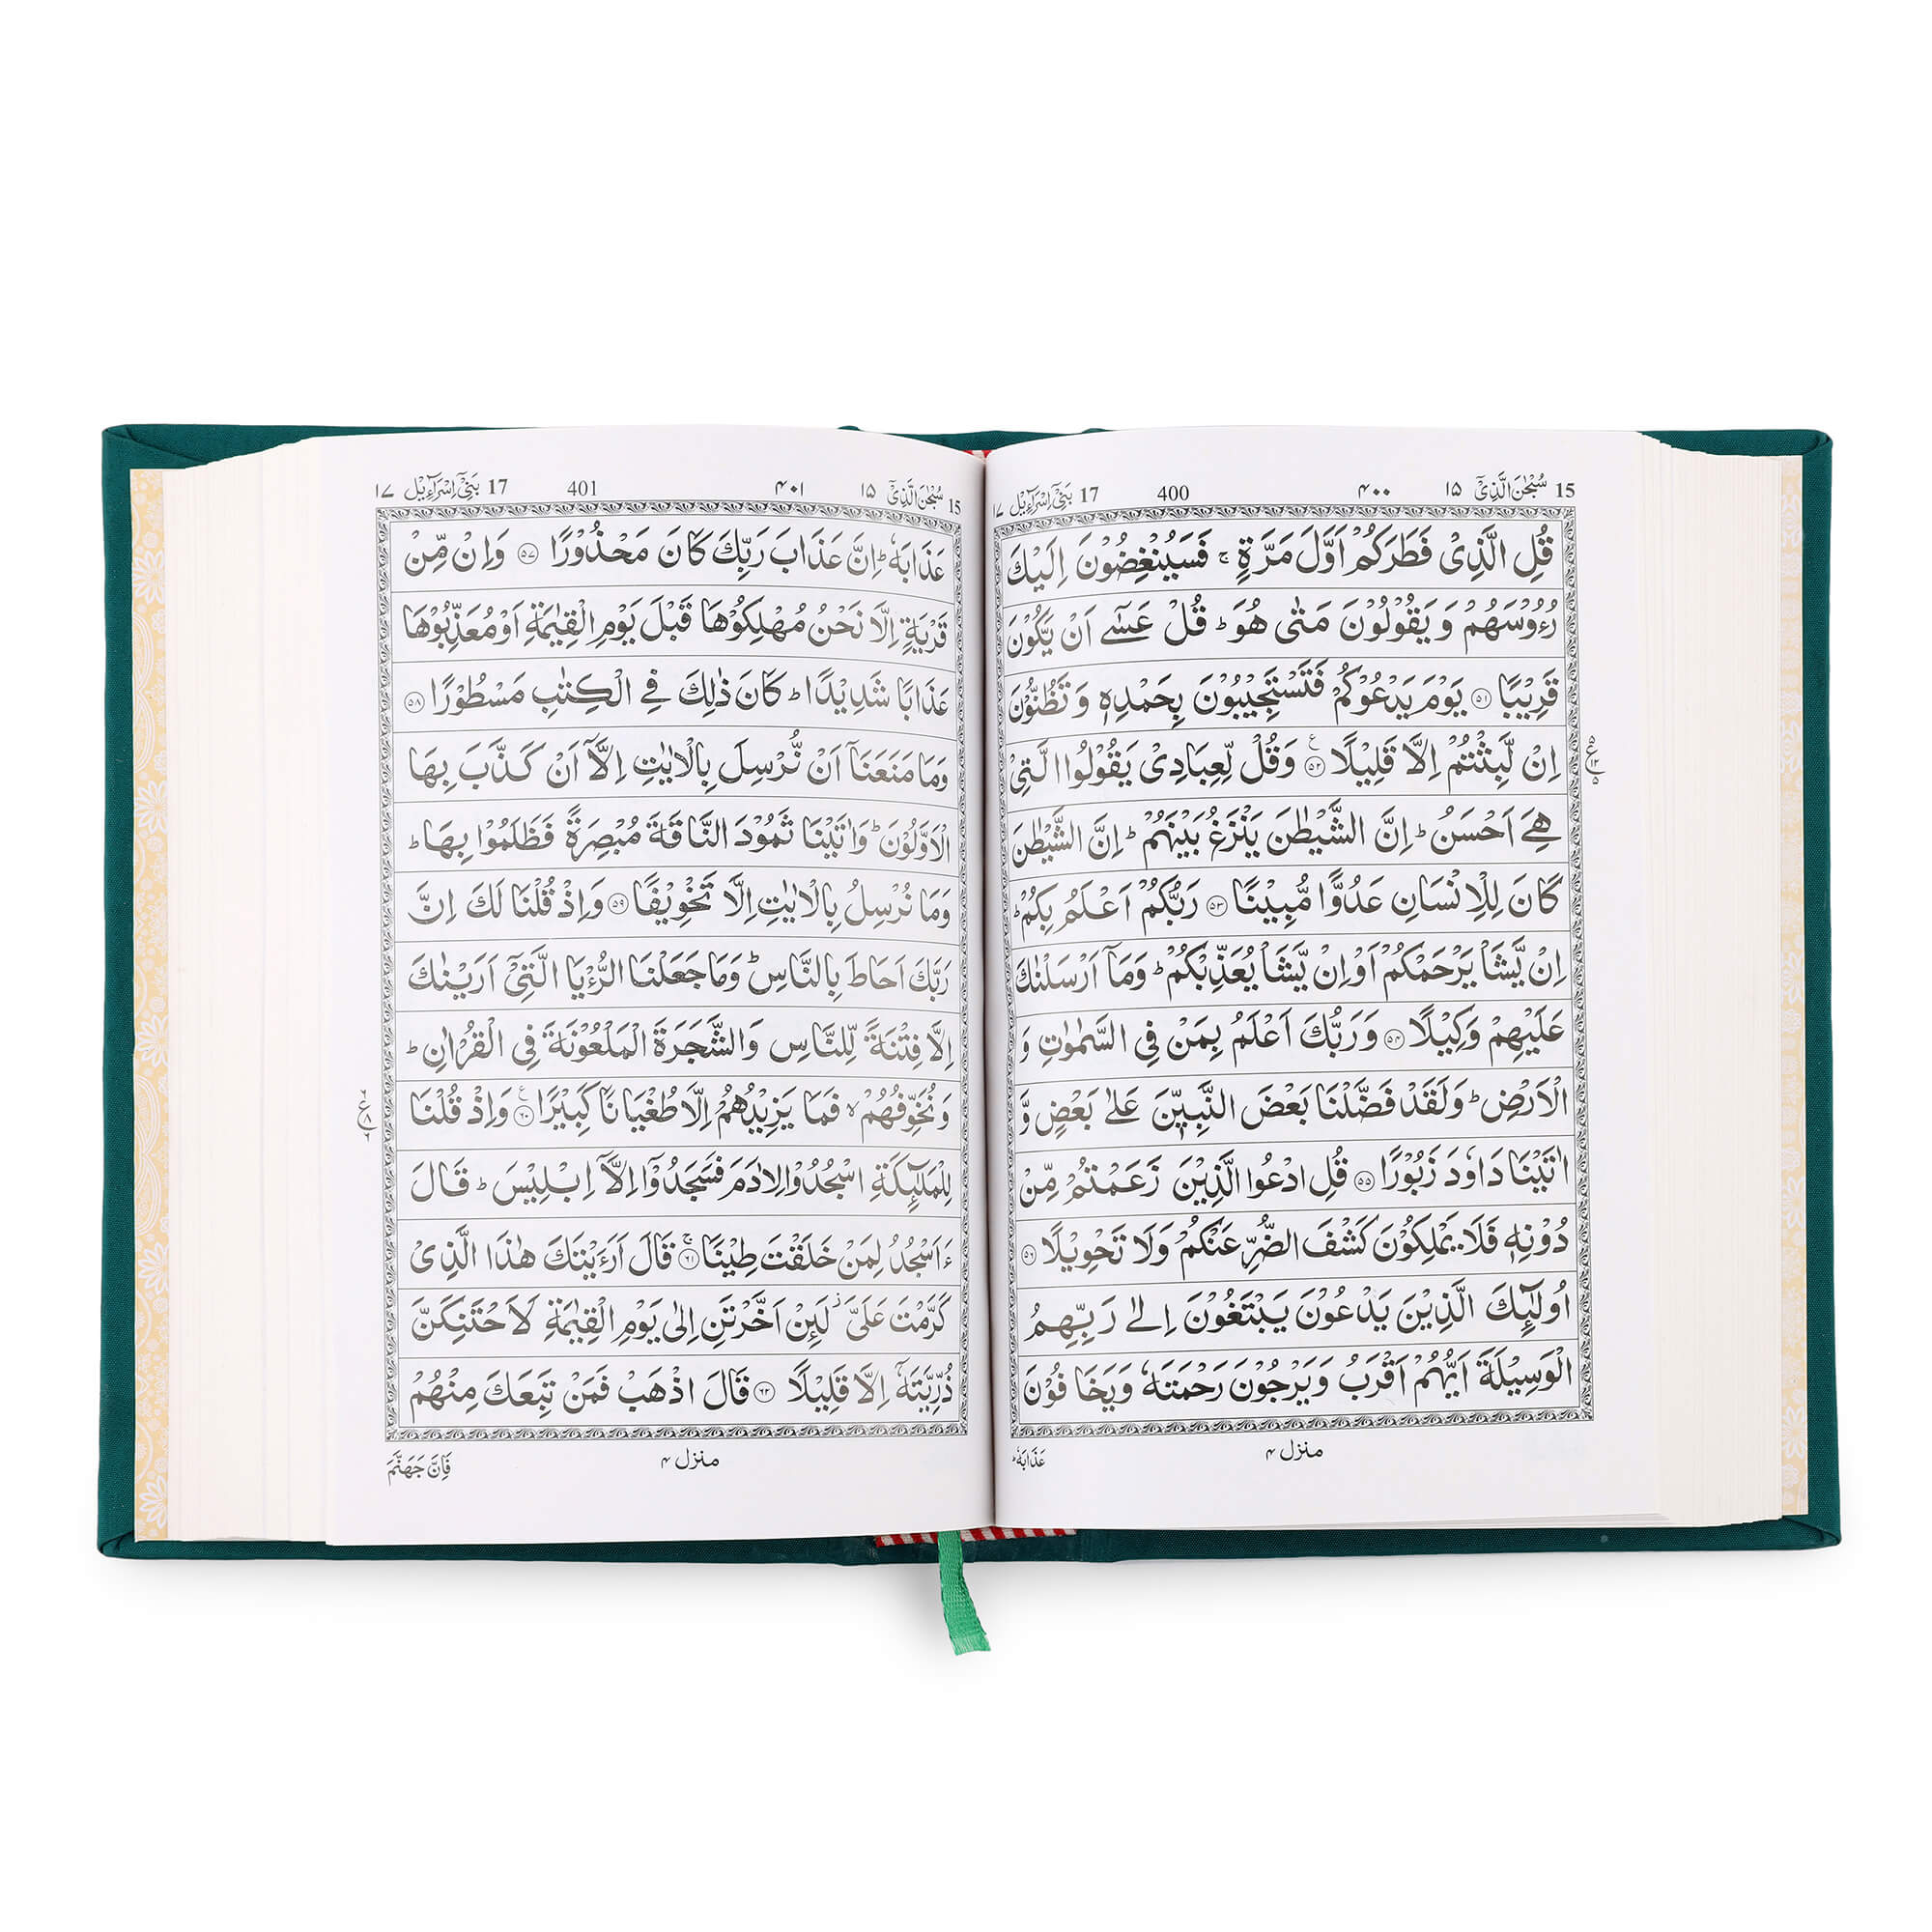 15 سُبْحٰنَ الَّذِیْۤ ۱۵ ۴۰۰ 400 17 بَنِیْۤ اِسْرَآءِیْل ۱۷
قُلِ الَّذِیْ فَطَرَكُمْ اَوَّلَ مَرَّةٍ ۚ فَسَیُنْغِضُوْنَ اِلَیْكَ
رُءُوْسَهُمْ وَ یَقُوْلُوْنَ مَتٰی هُوَ ؕ قُلْ عَسٰۤی اَنْ یَّكُوْنَ
قَرِیْبًا ۵۱ یَوْمَ یَدْعُوْكُمْ فَتَسْتَجِیْبُوْنَ بِحَمْدِهٖ وَ تَظُنُّوْنَ
اِنْ لَّبِثْتُمْ اِلَّا قَلِیْلًا ۵۲ وَ قُلْ لِّعِبَادِیْ یَقُوْلُوا الَّتِیْ
هِیَ اَحْسَنُ ؕ اِنَّ الشَّیْطٰنَ یَنْزَغُ بَیْنَهُمْ ؕ اِنَّ الشَّیْطٰنَ
كَانَ لِلْاِنْسَانِ عَدُوًّا مُّبِیْنًا ۵۳ رَبُّكُمْ اَعْلَمُ بِكُمْ ؕ
اِنْ یَّشَاْ یَرْحَمْكُمْ اَوْ اِنْ یَّشَاْ یُعَذِّبْكُمْ ؕ وَمَاۤ اَرْسَلْنٰكَ
عَلَیْهِمْ وَكِیْلًا ۵۴ وَ رَبُّكَ اَعْلَمُ بِمَنْ فِی السَّمٰوٰتِ وَ
الْاَرْضِ ؕ وَلَقَدْ فَضَّلْنَا بَعْضَ النَّبِیّٖنَ عَلٰی بَعْضٍ وَّ
اٰتَیْنَا دَاوٗدَ زَبُوْرًا ۵۵ قُلِ ادْعُوا الَّذِیْنَ زَعَمْتُمْ مِّنْ
دُوْنِهٖ فَلَا یَمْلِكُوْنَ كَشْفَ الضُّرِّ عَنْكُمْ وَلَا تَحْوِیْلًا ۵۶
اُولٰٓئِكَ الَّذِیْنَ یَدْعُوْنَ یَبْتَغُوْنَ اِلٰی رَبِّهِمُ
الْوَسِیْلَةَ اَیُّهُمْ اَقْرَبُ وَیَرْجُوْنَ رَحْمَتَهٗ وَیَخَافُوْنَ
منزل ۴
عَذَابَهٗ ؕ
15 سُبْحٰنَ الَّذِیْۤ ۱۵ ۴۰۱ 401 17 بَنِیْۤ اِسْرَآءِیْل ۱۷
عَذَابَهٗ ؕ اِنَّ عَذَابَ رَبِّكَ كَانَ مَحْذُوْرًا ۵۷ وَاِنْ مِّنْ
قَرْیَةٍ اِلَّا نَحْنُ مُهْلِكُوْهَا قَبْلَ یَوْمِ الْقِیٰمَةِ اَوْ مُعَذِّبُوْهَا
عَذَابًا شَدِیْدًا ؕ كَانَ ذٰلِكَ فِی الْكِتٰبِ مَسْطُوْرًا ۵۸
وَمَا مَنَعَنَاۤ اَنْ نُّرْسِلَ بِالْاٰیٰتِ اِلَّاۤ اَنْ كَذَّبَ بِهَا
الْاَوَّلُوْنَ ؕ وَاٰتَیْنَا ثَمُوْدَ النَّاقَةَ مُبْصِرَةً فَظَلَمُوْا بِهَا ؕ
وَمَا نُرْسِلُ بِالْاٰیٰتِ اِلَّا تَخْوِیْفًا ۵۹ وَاِذْ قُلْنَا لَكَ اِنَّ
رَبَّكَ اَحَاطَ بِالنَّاسِ ؕ وَمَا جَعَلْنَا الرُّءْیَا الَّتِیْۤ اَرَیْنٰكَ
اِلَّا فِتْنَةً لِّلنَّاسِ وَالشَّجَرَةَ الْمَلْعُوْنَةَ فِی الْقُرْاٰنِ ؕ
وَ نُخَوِّفُهُمْ ۙ فَمَا یَزِیْدُهُمْ اِلَّا طُغْیَانًا كَبِیْرًا ۶۰ وَاِذْ قُلْنَا
لِلْمَلٰٓئِكَةِ اسْجُدُوْا لِاٰدَمَ فَسَجَدُوْۤا اِلَّاۤ اِبْلِیْسَ ؕ قَالَ
ءَاَسْجُدُ لِمَنْ خَلَقْتَ طِیْنًا ۶۱ قَالَ اَرَءَیْتَكَ هٰذَا الَّذِیْ
كَرَّمْتَ عَلَیَّ ز لَئِنْ اَخَّرْتَنِ اِلٰی یَوْمِ الْقِیٰمَةِ لَاَحْتَنِكَنَّ
ذُرِّیَّتَهٗۤ اِلَّا قَلِیْلًا ۶۲ قَالَ اذْهَبْ فَمَنْ تَبِعَكَ مِنْهُمْ
منزل ۴
فَاِنَّ جَهَنَّمَ